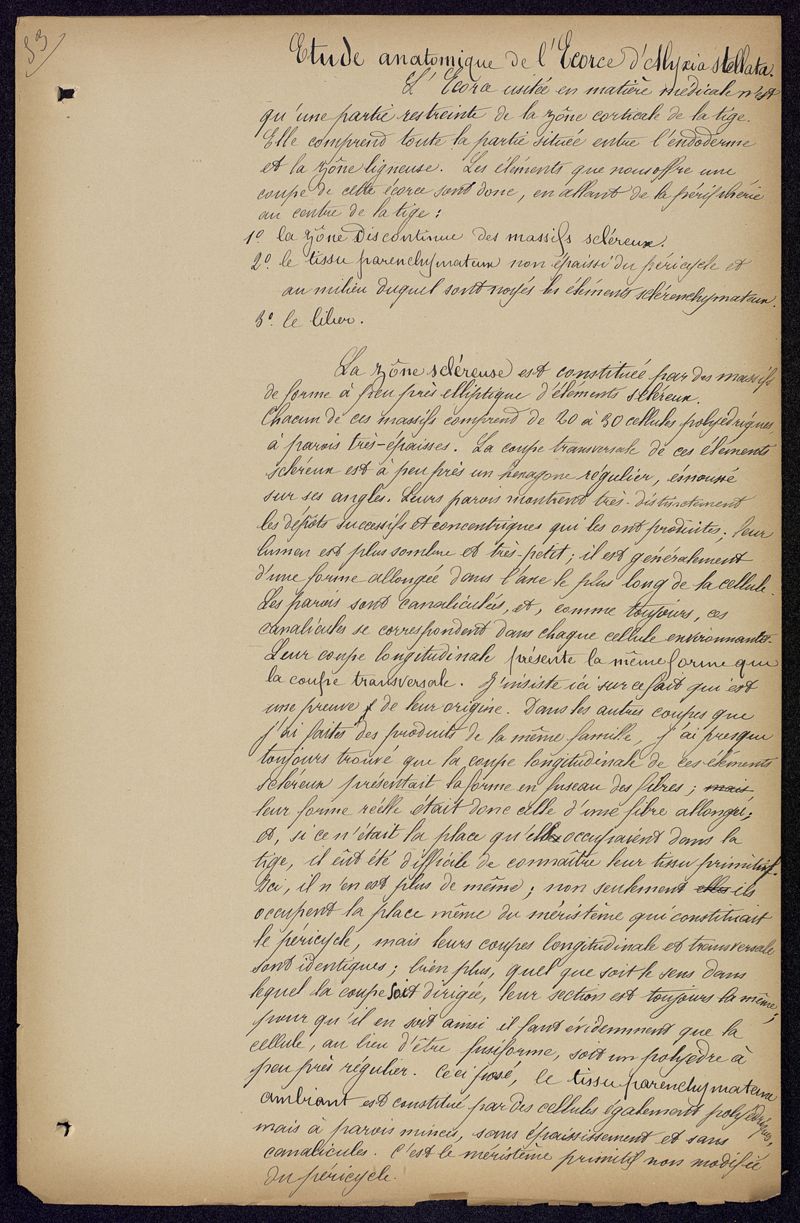 53
Etude anatomique de l'Ecorce d'Alyxia stellata.
L'Ecorce usitée en matière médicale n'est
qu'une partie restreinte de la zône corticale de la tige.
Elle comprend toute la partie située entre l'endoderme
et la zône ligneuse. Les éléments que nous offre une
coupe de cette écorce sont donc, en allant de la périphérie
au centre de la tige :
1º la zône discontinue des massifs scléreux.
2º le tissu parenchymateux non épaissi du péricycle et
au milieu duquel sont noyés les éléments sclérenchymateux.
3º le liber.
La zône scléreuse est constituée par des massifs
de forme à peu près elliptique d'éléments scléreux.
Chacun de ces massifs comprend de 20 à 30 cellules polyédriques
à parois très-épaisses. La coupe transversale de ces éléments
scléreux est à peu près un hexagone régulier, émoussé
sur ses angles. Leurs parois montrent très-distinctement
les dépôts successifs et concentriques qui les ont produites ; leur
lumen est plus sombre et très-petit ; il est généralement
d'une forme allongée dans l'axe le plus long de la cellule.
Les parois sont canaliculées, et, comme toujours, ces
canalicules se correspondent dans chaque cellule environnante.
Leur coupe longitudinale présente la même forme que
la coupe transversale. J'insiste ici sur ce fait qui est
une preuve de leur origine. Dans les autres coupes que
j'ai faites des produits de la même famille, j'ai presque
toujours trouvé que la coupe longitudinale de ces éléments
scléreux présentait la forme en fuseau des fibres ; mais
leur forme réelle était donc celle d'une fibre allongée ;
et, si ce n'était la place qu'elles occupaient dans la
tige, il eût été difficile de connaître leur tissu primitif.
Ici, il n'en est plus de même ; non seulement elles ils
occupent la place même du méristème qui constituait
le péricycle, mais leurs coupes longitudinale et transversale
sont identiques ; bien plus, quel que soit le sens dans
lequel la coupe soit dirigée, leur section est toujours la même ;
pour qu'il en soit ainsi il faut évidemment que la
cellule, au lieu d'être fusiforme, soit un polyèdre à
peu près régulier. Ceci posé, le tissu parenchymateux
ambiant est constitué par des cellules également polyédriques,
mais à parois minces, sans épaississement et sans
canalicules. C'est le méristème primitif non modifié
du péricycle.